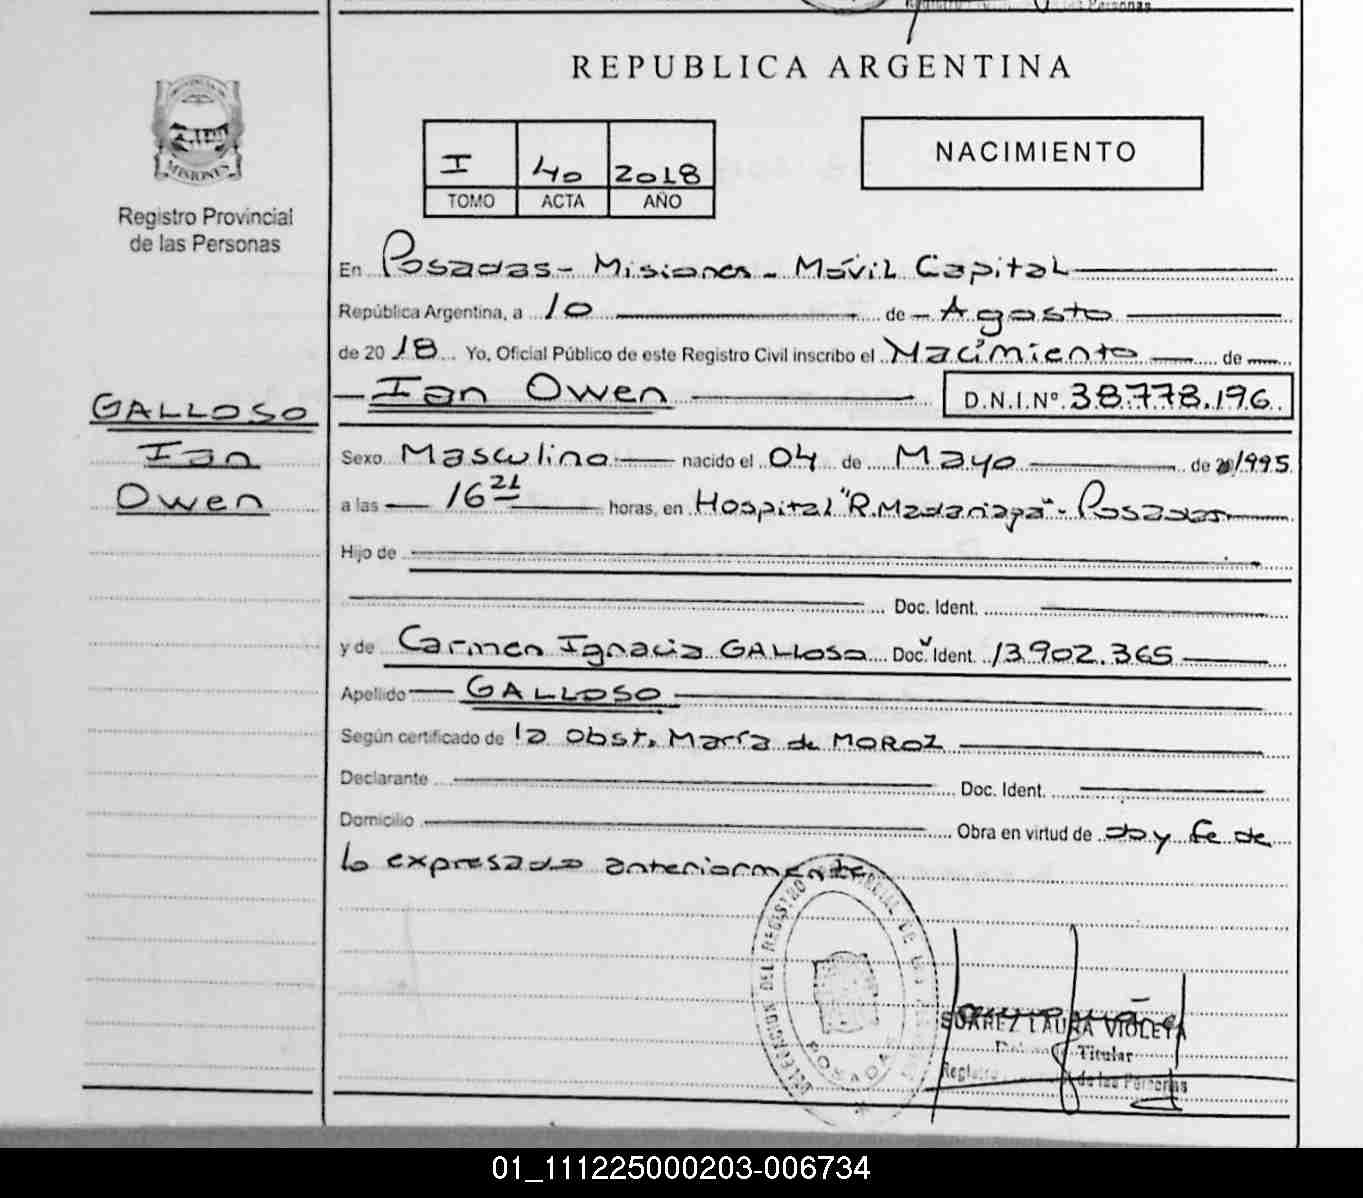 REPUBLICA ARGENTINA
MISIONES
Registro Provincial
de las Personas
I 40 2018
TOMO ACTA AÑO
NACIMIENTO
En Posadas - Misiones - Móvil Capital
República Argentina, a 10 de - Agosto
de 2018 Yo, Oficial Público de este Registro Civil inscribo el Nacimiento de
Ian Owen D.N.I.Nº 38.778.196
GALLOSO
Ian
Owen
Sexo Masculino nacido el 04 de Mayo de 1995
a las 16 21 horas, en Hospital "R. Madariaga" - Posadas
Hijo de
Doc. Ident.
y de Carmen Ignacia GALLOSO Doc. Ident. 13.902.365
Apellido GALLOSO
Según certificado de la Obst. María de MOROZ
Declarante Doc. Ident.
Domicilio Obra en virtud de doy fe de
lo expresado anteriormente
DELEGACION DEL REGISTRO PROVINCIAL DE LAS
POSADAS
SUAREZ LAURA VIOLETA
Titular
Registro de las Personas
01_111225000203-006734